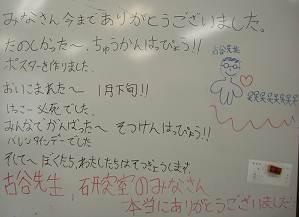 みなさん今までありがとうございました。
たのしかった〜、ちゅうかんはっぴょう!!
ポスターを作りました。
おいこまれた〜 1月下旬!!
けっこー必死でした。
みんなでがんばった〜 そつけんはっぴょう!!
バレンタインデーでした
そして〜 ぼくたち、わたしたちはそつぎょうします。
古谷先生 研究室のみなさん
本当にありがとうございました!
古谷先生